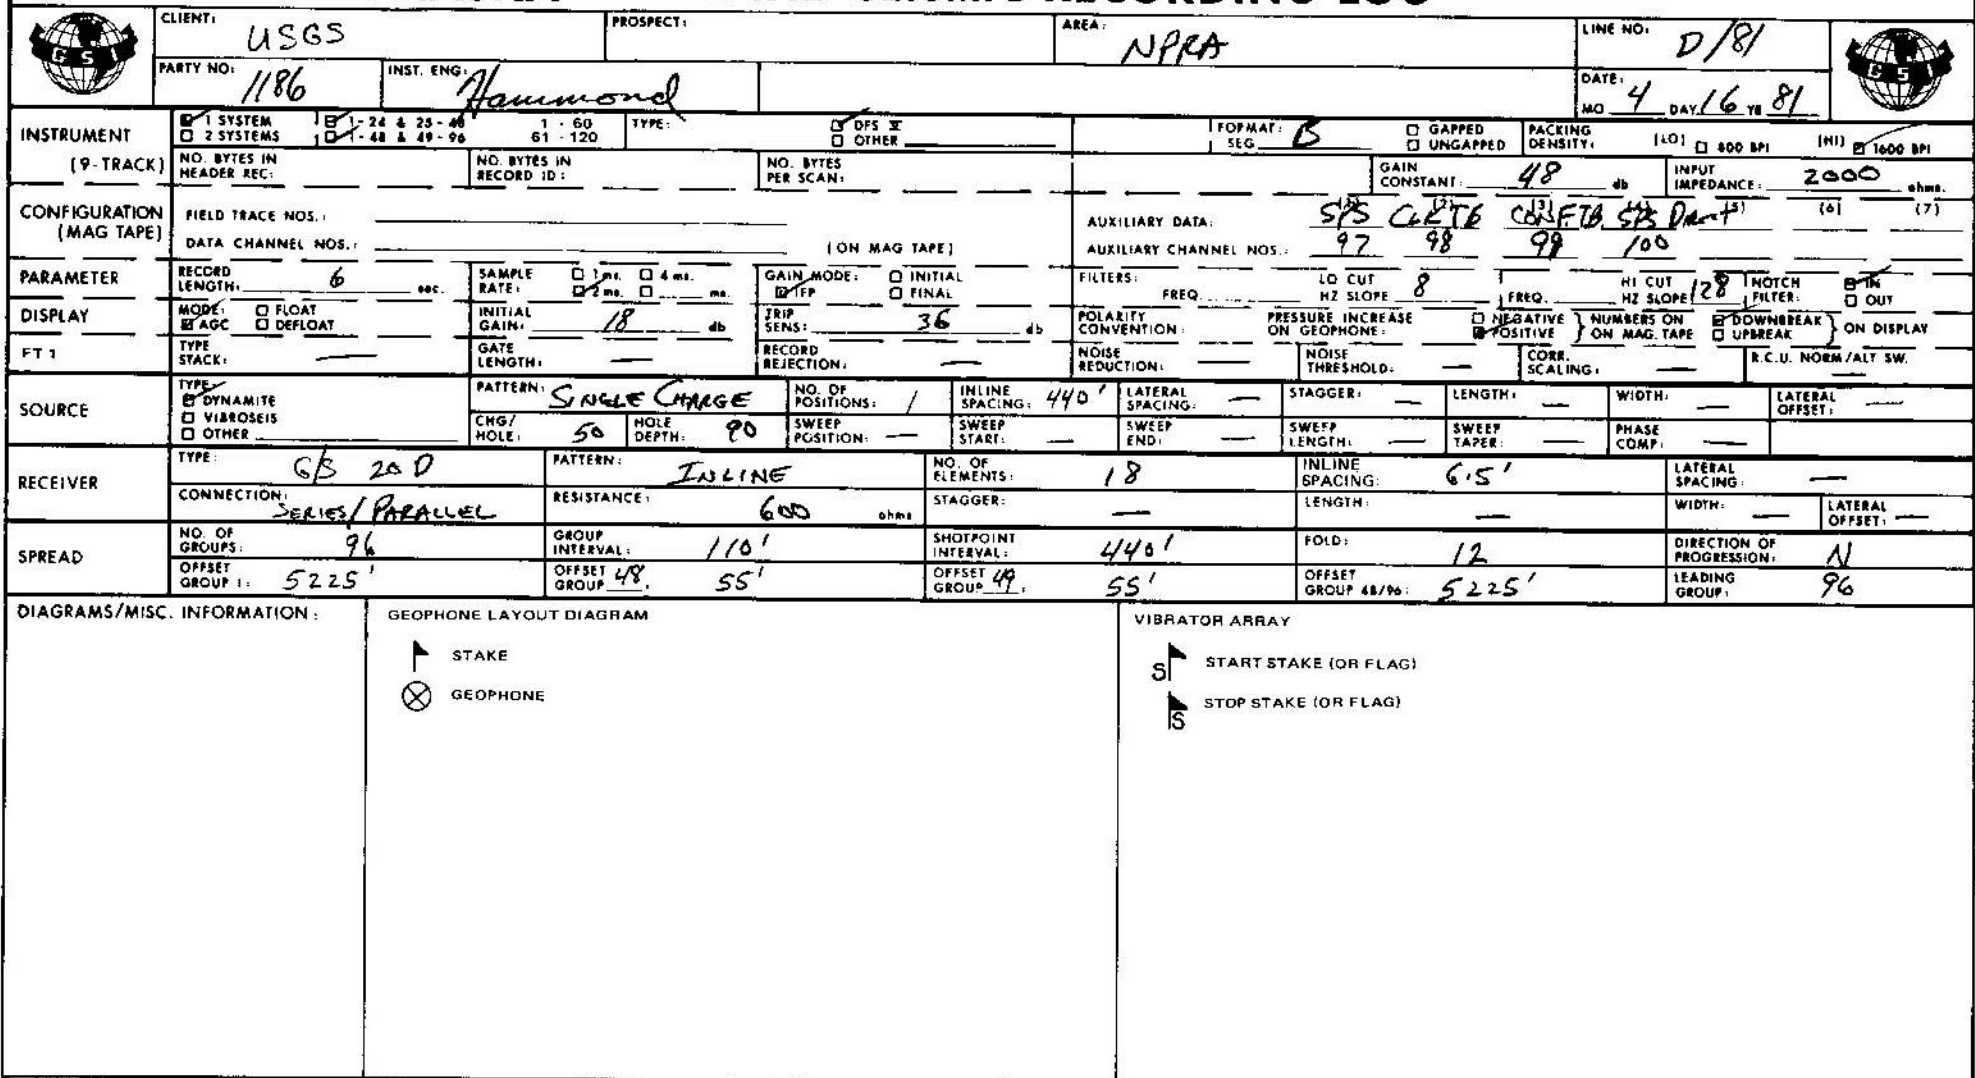 RECORDING LOG
GSI CLIENT: USGS PROSPECT: AREA: NPRA LINE NO: D/81 GSI
PARTY NO: 1186 INST. ENG: Hammond DATE: MO 4 DAY 16 YR 81
INSTRUMENT 1 SYSTEM 1-24 & 25-48 1 - 60 TYPE: DFS V FORMAT: B GAPPED PACKING [LO] [HI]
2 SYSTEMS 1-48 & 49-96 61 - 120 OTHER SEG UNGAPPED DENSITY: 800 BPI 1600 BPI
(9-TRACK) NO. BYTES IN HEADER REC: NO. BYTES IN RECORD ID: NO. BYTES PER SCAN: GAIN CONSTANT: 48 db INPUT IMPEDANCE: 2000 ohms.
CONFIGURATION FIELD TRACE NOS.: AUXILIARY DATA: (1) (2) (3) (4) (5) (6) (7)
(MAG TAPE) DATA CHANNEL NOS.: (ON MAG TAPE) AUXILIARY CHANNEL NOS.: 97 98 99 100
PARAMETER RECORD LENGTH: 6 sec. SAMPLE RATE: 1 ms. 4 ms. 2 ms. ms. GAIN MODE: INITIAL IFP FINAL FILTERS: FREQ. LO CUT HZ SLOPE 8 FREQ. HI CUT HZ SLOPE 128 NOTCH FILTER: IN OUT
DISPLAY MODE: FLOAT AGC DEFLOAT INITIAL GAIN: 18 db TRIP SENS: 36 db POLARITY CONVENTION: PRESSURE INCREASE ON GEOPHONE: NEGATIVE POSITIVE } NUMBERS ON ON MAG. TAPE DOWNBREAK UPBREAK } ON DISPLAY
FT 1 TYPE STACK: — GATE LENGTH: — RECORD REJECTION: — NOISE REDUCTION: — NOISE THRESHOLD: — CORR. SCALING: — R.C.U. NORM/ALT SW. —
SOURCE TYPE: DYNAMITE VIBROSEIS OTHER PATTERN: SINGLE CHARGE NO. OF POSITIONS: 1 INLINE SPACING: 440' LATERAL SPACING: — STAGGER: — LENGTH: — WIDTH: — LATERAL OFFSET: —
CHG/HOLE: 50 HOLE DEPTH: 90 SWEEP POSITION: — SWEEP START: — SWEEP END: — SWEEP LENGTH: — SWEEP TAPER: — PHASE COMP: —
RECEIVER TYPE: G/S 20 D PATTERN: INLINE NO. OF ELEMENTS: 18 INLINE SPACING: 6.5' LATERAL SPACING: —
CONNECTION: SERIES/PARALLEL RESISTANCE: 600 ohms STAGGER: — LENGTH: — WIDTH: — LATERAL OFFSET: —
SPREAD NO. OF GROUPS: 96 GROUP INTERVAL: 110' SHOTPOINT INTERVAL: 440' FOLD: 12 DIRECTION OF PROGRESSION: N
OFFSET GROUP 1: 5225' OFFSET GROUP 48: 55' OFFSET GROUP 49: 55' OFFSET GROUP 48/96: 5225' LEADING GROUP: 96
DIAGRAMS/MISC. INFORMATION: GEOPHONE LAYOUT DIAGRAM VIBRATOR ARRAY
STAKE S START STAKE (OR FLAG)
GEOPHONE S STOP STAKE (OR FLAG)